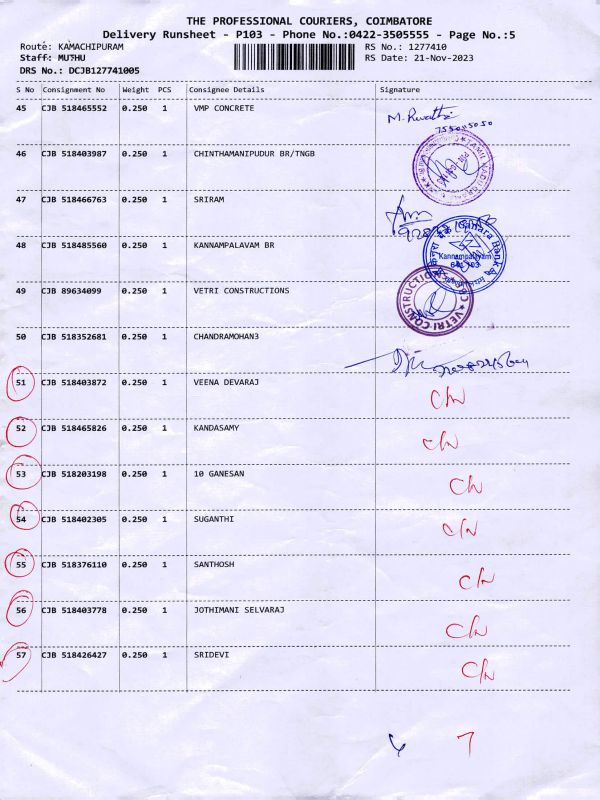 THE PROFESSIONAL COURIERS, COIMBATORE
Delivery Runsheet - P103 - Phone No.:0422-3505555 - Page No.:5
Route: KAMACHIPURAM RS No.: 1277410
Staff: MUTHU RS Date: 21-Nov-2023
DRS No.: DCJB127741005
S No Consignment No Weight PCS Consignee Details Signature
45 CJB 518465552 0.250 1 VMP CONCRETE
46 CJB 518403987 0.250 1 CHINTHAMANIPUDUR BR/TNGB
47 CJB 518466763 0.250 1 SRIRAM
48 CJB 518485560 0.250 1 KANNAMPALAVAM BR
Canara Bank
Kannampalayam
49 CJB 89634099 0.250 1 VETRI CONSTRUCTIONS
VETRI CONSTRUCTIONS
50 CJB 518352681 0.250 1 CHANDRAMOHAN3
51 CJB 518403872 0.250 1 VEENA DEVARAJ
52 CJB 518465826 0.250 1 KANDASAMY
53 CJB 518203198 0.250 1 10 GANESAN
54 CJB 518402305 0.250 1 SUGANTHI
55 CJB 518376110 0.250 1 SANTHOSH
56 CJB 518403778 0.250 1 JOTHIMANI SELVARAJ
57 CJB 518426427 0.250 1 SRIDEVI
6 7